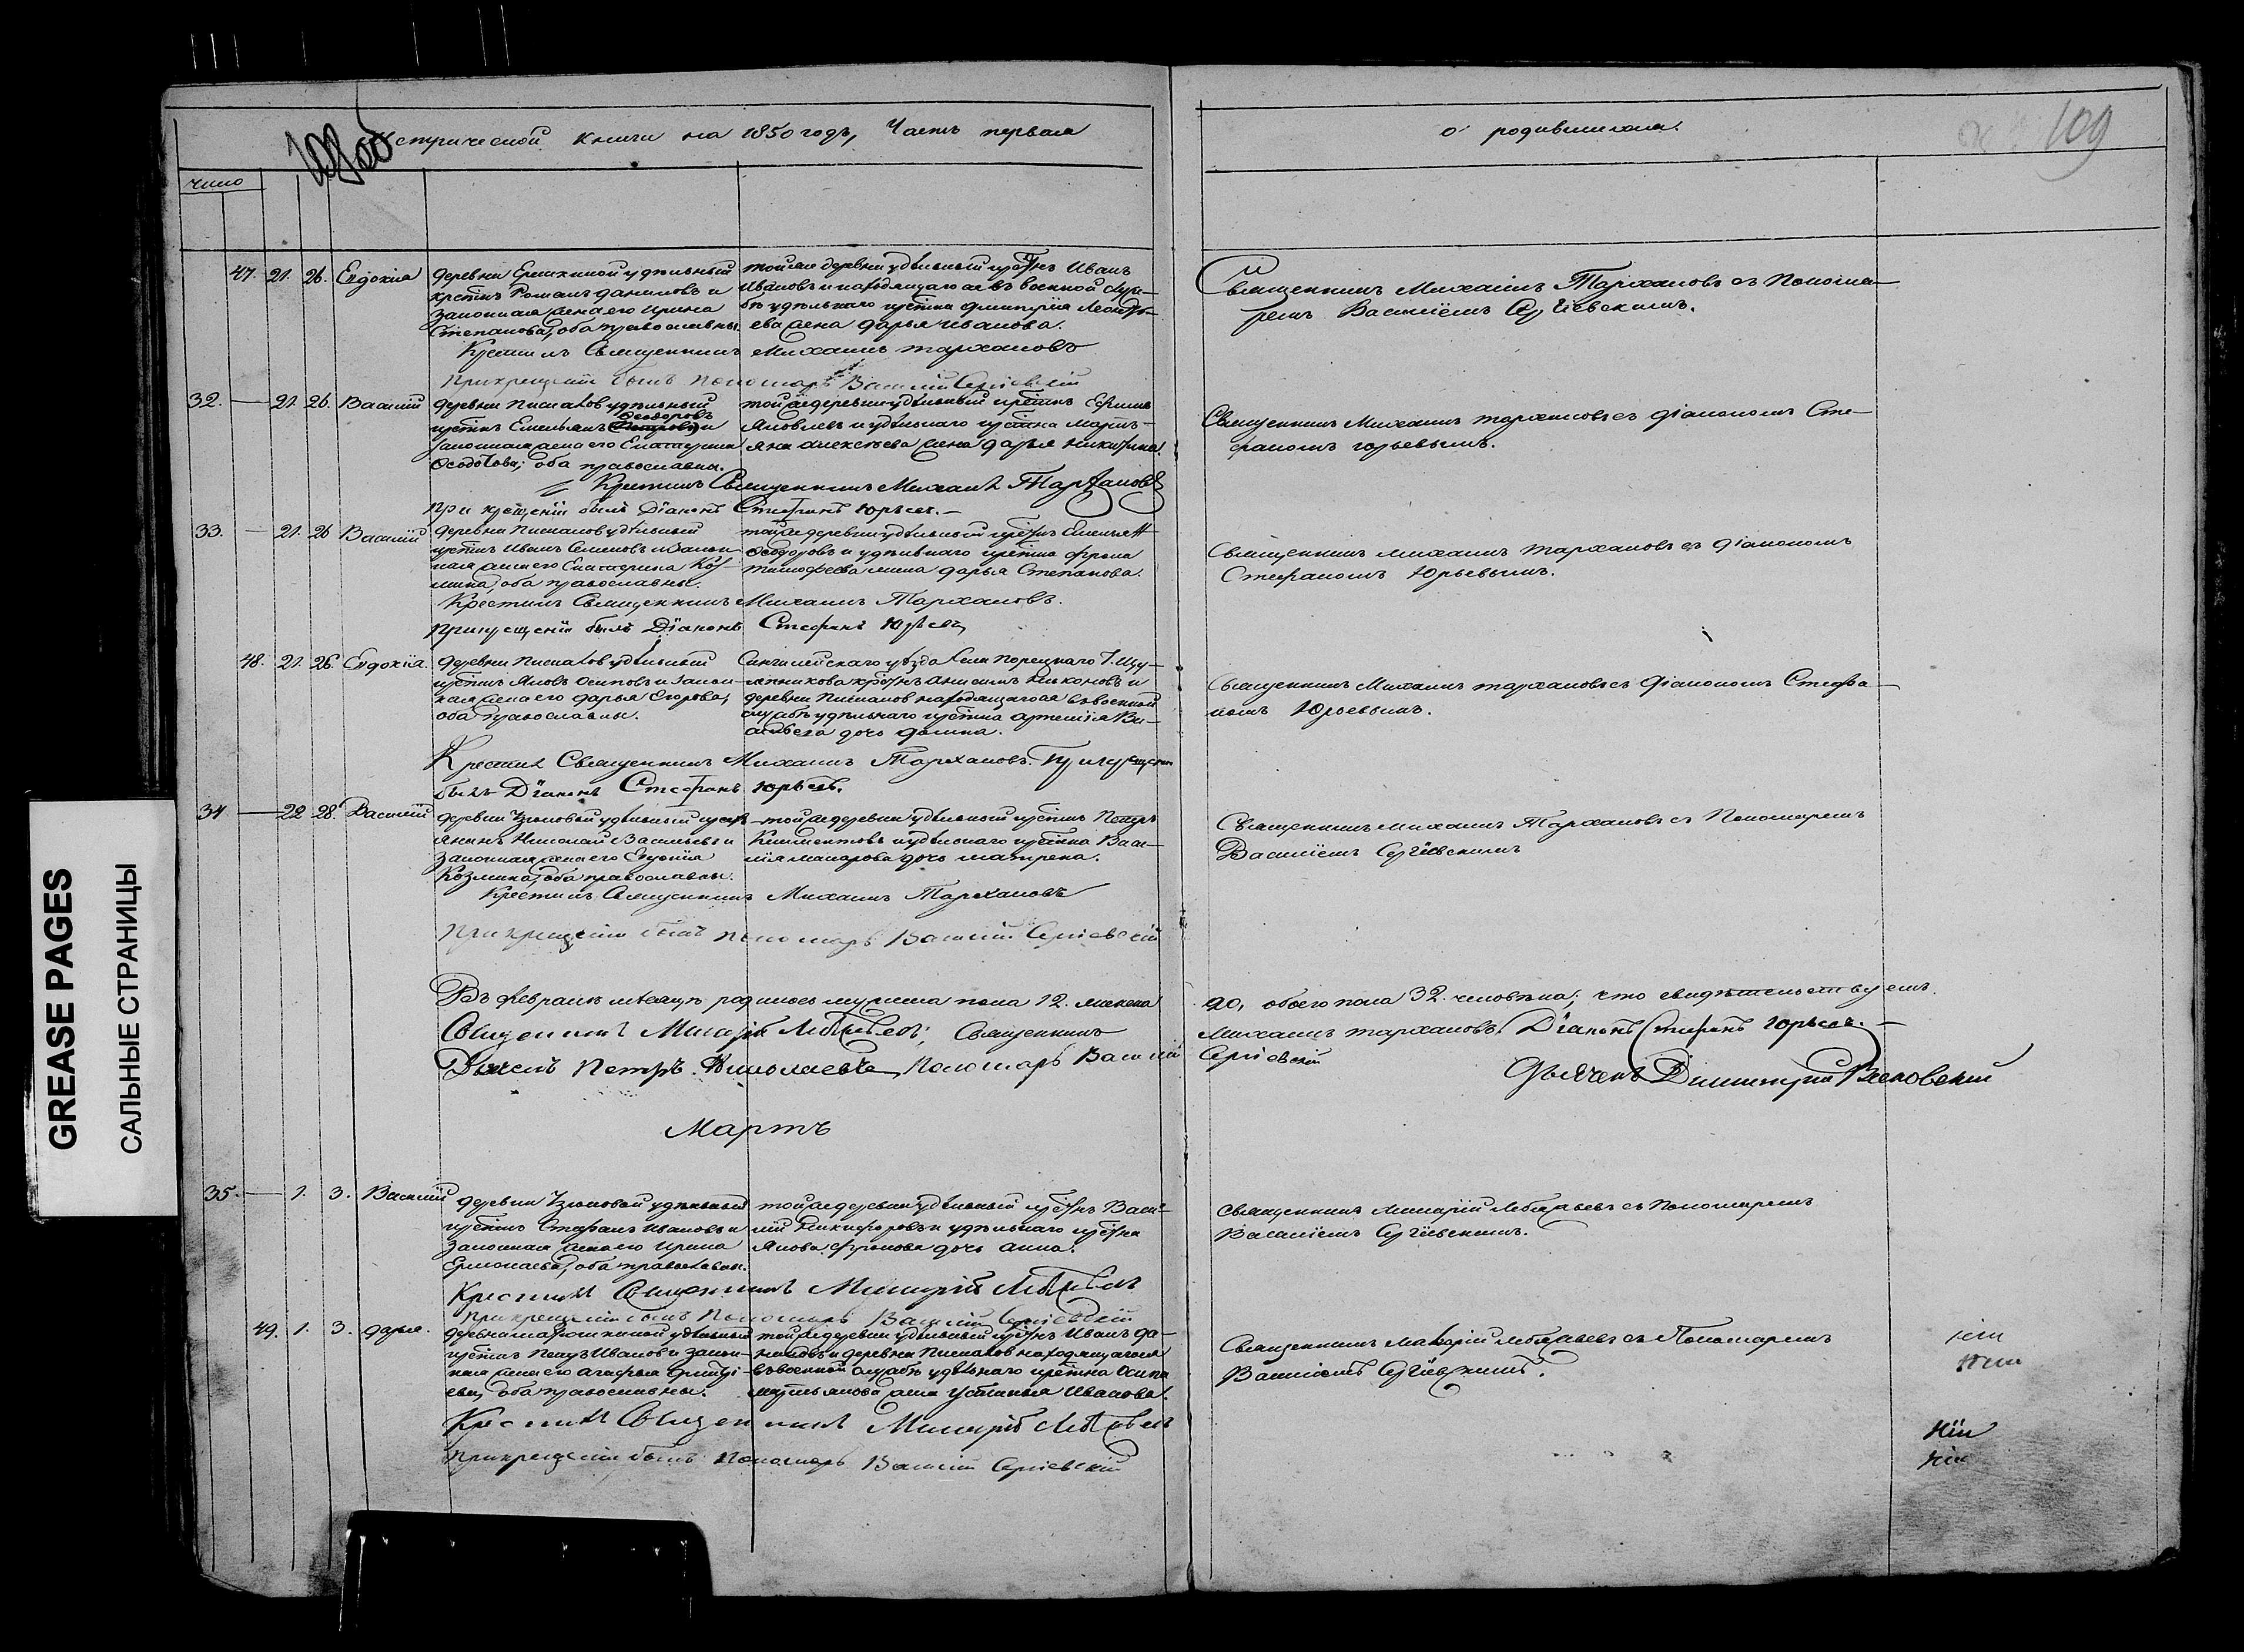 108 об
Метрической книги на 1850 годъ, Часть первая
о родившихся.
109
число
47. 21. 26. Евдокія
деревни Ермкиной удѣльный
крестнъ Романъ Даниловъ и
законная жена его Ирина
Степанова, оба православны.
той же деревни удѣльный крестнъ Иванъ
Ивановъ и находящагося въ военной служ-
бѣ удѣльнаго крестна Дмитрія Леонтъ-
ева жена Дарья Иванова.
Священникъ Михаилъ Тархановъ съ Понома-
ремъ Василіемъ Сергіевскимъ.
Крестилъ Священникъ Михаилъ Тархановъ
При крещеніи былъ Пономарь Василій Сергіевскій
32. — 21. 26. Василій
деревни Писмалов удѣльный
Ѳеодоровъ
крестнъ Емельянъ и
законная жена его Екатерина
Ѳеодотова; оба православны.
той же деревни удѣльный крестнъ Ефимъ
Яковлевъ и удѣльнаго крестна Мартъ-
яна Алексѣева жена Дарья Никитина.
Священникъ Михаилъ Тархановъ съ Діакономъ Сте-
фаномъ Юрьевымъ.
Крестилъ Священникъ Михаилъ Тархановъ
При крещеніи былъ Діаконъ Стефанъ Юрьевъ.—
33. — 21. 26 Василій
деревни Писмалов удѣльный
крестнъ Иванъ Семеновъ и закон-
ная жена его Екатерина Коз-
мина, оба православны.
той же деревни удѣльный крестнъ Емельянъ
Ѳеодоровъ и удѣльнаго крестна Фрола
Тимофеева жена Дарья Степанова.
Священникъ Михаилъ Тархановъ съ Діакономъ
Стефаномъ Юрьевымъ.
Крестилъ Священникъ Михаилъ Тархановъ.
При крещеніи былъ Діаконъ Стефанъ Юрьевъ
48. 21. 26. Евдокія.
деревни Писмалов удѣльный
крестнъ Яковъ Осиповъ и закон-
ная жена его Дарья Егорова,
оба православны.
Сингилейскаго уѣзда села Порецкаго Г.
крестнъ Анисимъ Никоновъ и
деревни Писмалов находящагося въ военной
службѣ удѣльнаго крестна Артемія Ва-
сильева дочь Домна.
Священникъ Михаилъ Тархановъ съ Діакономъ Стефа-
номъ Юрьевымъ.
Крестилъ Священникъ Михаилъ Тархановъ. При крещеніи
былъ Діаконъ Стефанъ Юрьевъ.
34 — 22 28. Василій
деревни Узюковой удѣльный крест-
янинъ Николай Васильевъ и
законная жена его Евдокія
Козмина, оба православны.
той же деревни удѣльный крестнъ Петръ
Климентовъ и удѣльнаго крестна Васи-
лія Макарова дочь Матрена.
Священникъ Михаилъ Тархановъ съ Пономаремъ
Василіемъ Сергіевскимъ
Крестилъ Священникъ Михаилъ Тархановъ
При крещеніи былъ Пономарь Василій Сергіевскій
Въ февралѣ мѣсяцѣ родилось мужеска пола 12. женска
20, обоего пола 32. человѣка; что свидѣтельствуемъ.
Священникъ Макарій Лебедевъ; Священникъ
Михаилъ Тархановъ. Діаконъ Стефанъ Юрьевъ.—
Дьячекъ Петръ Николаевъ, Пономарь Василій
Сергіевскій
Дьячекъ Димитрій
Мартъ
35. — 1. 3. Василій
деревни Узюковой удѣльный
крестнъ Стефанъ Ивановъ и
законная жена его Ирина
Ермолаева, оба православны.
той же деревни удѣльный крестнъ Васи-
лій Никифоровъ и удѣльнаго крестна
Якова Фролова дочь Анна.
Священникъ Макарій Лебедевъ съ Пономаремъ
Василіемъ Сергіевскимъ.
Крестилъ Священникъ Макарій Лебедевъ
При крещеніи былъ Пономарь Василій Сергіевскій
49. 1. 3. Дарья.
деревни удѣльный
крестнъ Петръ Ивановъ и закон-
ная жена его Агафья Дмитрі-
ева, оба православны.
той же деревни удѣльный крестнъ Иванъ Да-
ниловъ и деревни Писмалов находящагося
въ военной службѣ удѣльнаго крестна Осипа
жена Устинья Иванова.
Священникъ Макарій Лебедевъ съ Пономаремъ
Василіемъ Сергіевскимъ.
Крестилъ Священникъ Макарій Лебедевъ
При крещеніи былъ Пономарь Василій Сергіевскій
GREASE PAGES
САЛЬНЫЕ СТРАНИЦЫ